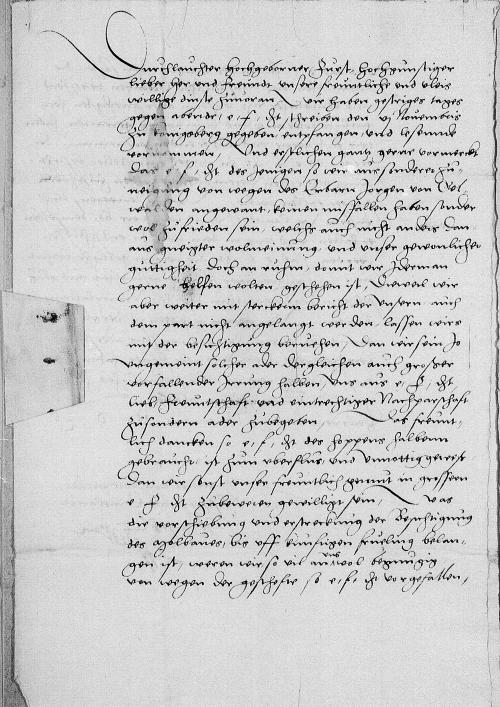 Durchlauchter Hochgeborner Furst, Hochgunstiger
lieber her und freundt unsere freuntliche und vleis
willige dinste zuuoran, Wir haben gestriges tages
gegen abende, e, f, dt schreiben den vj Nouembris
zu Kunigsberg gegeben entpfangen und lesende
vornommen, Und erstlichen gantz gerne vormerckt
das e, f, dt des jenigen so wir aus sonderer zu
neigung von wegen des Erbarn Jorgen von
angewant, keinen misfallen haben sonder
wol zufrieden sein, welchs auch nicht anders dan
aus guetter wolmeinung und unser gewonlicher
guttigheit, doch an ruhm, domit wir iderman
gerne helffen wolten geschehen ist, Dieweil wir
aber weiter mit sterckem bericht der unsern auch
dem part nicht angelangt werden, lassen wirs
mit der besichtigung beruehen, Dan wir sein jo
ungemeint solcher ader dergleichen auch grosser
vorfallender Irrung halben, uns aus e, f, dt
lieb freuntschaft und eintrechtiger Nachparschaft
zusondern ader zubegeben, Das freunt-
lich dancken so e, f, dt des hoppens halbenn
gebraucht, ist zum uberflus, und
dan wir sonst unser freuntlich gemut in grossern
e, f, dt zubeweisen gewilligt sein, Was
die vorschiebung und erstreckung der Besichtigung
des bis uff kunftigen frueling belan-
gen ist, weren wir so vil wol
von wegen der geschefte so e, f, dt vorgefallen,